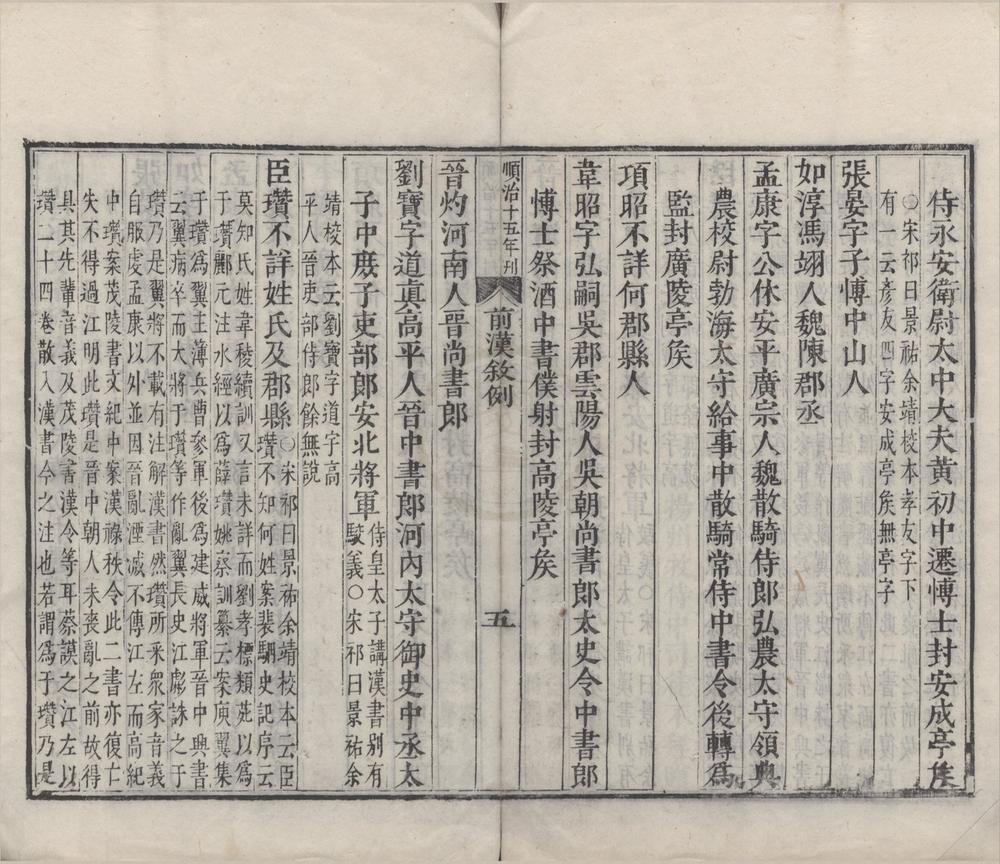 侍永安衛尉太中大夫黃初中遷博士封安成亭矦
○宋祁曰景祐余靖校本孝友字下
有一云彥友四字安成亭矦無亭字
張晏字子博中山人
如淳馮翊人魏陳郡丞
孟康字公休安平廣宗人魏散騎侍郎弘農太守領典
農校尉勃海太守給事中散騎常侍中書令後轉爲
監封廣陵亭矦
項昭不詳何郡縣人
韋昭字弘嗣吳郡雲陽人吳朝尚書郎太史令中書郎
博士祭酒中書僕射封高陵亭矦
順治十五年刊
前漢敘例
五
晉灼河南人晉尚書郎
劉寶字道眞高平人晉中書郎河內太守御史中丞太
子中庶子吏部郎安北將軍
侍皇太子講漢書别有
駮義○宋祁曰景祐余
靖校本云劉寶字道字高
平人晉吏部侍郎餘無說
臣瓚不詳姓氏及郡縣
○宋祁曰景祐余靖校本云臣
瓚不知何姓案裴駰史記序云
莫知氏姓韋稜續訓又言未詳而劉孝標類苑以爲
于瓚酈元注水經以爲薛瓚姚察訓纂云案庾翼集
于瓚爲翼主薄兵曹參軍後爲建威將軍晉中興書
云翼病卒而大將于瓚等作亂翼長史江虨誅之于
瓚乃是翼將不載有注解漢書然瓚所采衆家音義
自服虔孟康以外並因晉亂湮滅不傳江左而高紀
中瓚案茂陵書文紀中案漢祿秩令此二書亦復亡
失不得過江明此瓚是晉中朝人未喪亂之前故得
具其先輩音義及茂陵書漢令等耳蔡謨之江左以
瓚二十四卷散入漢書今之注也若謂爲于瓚乃是